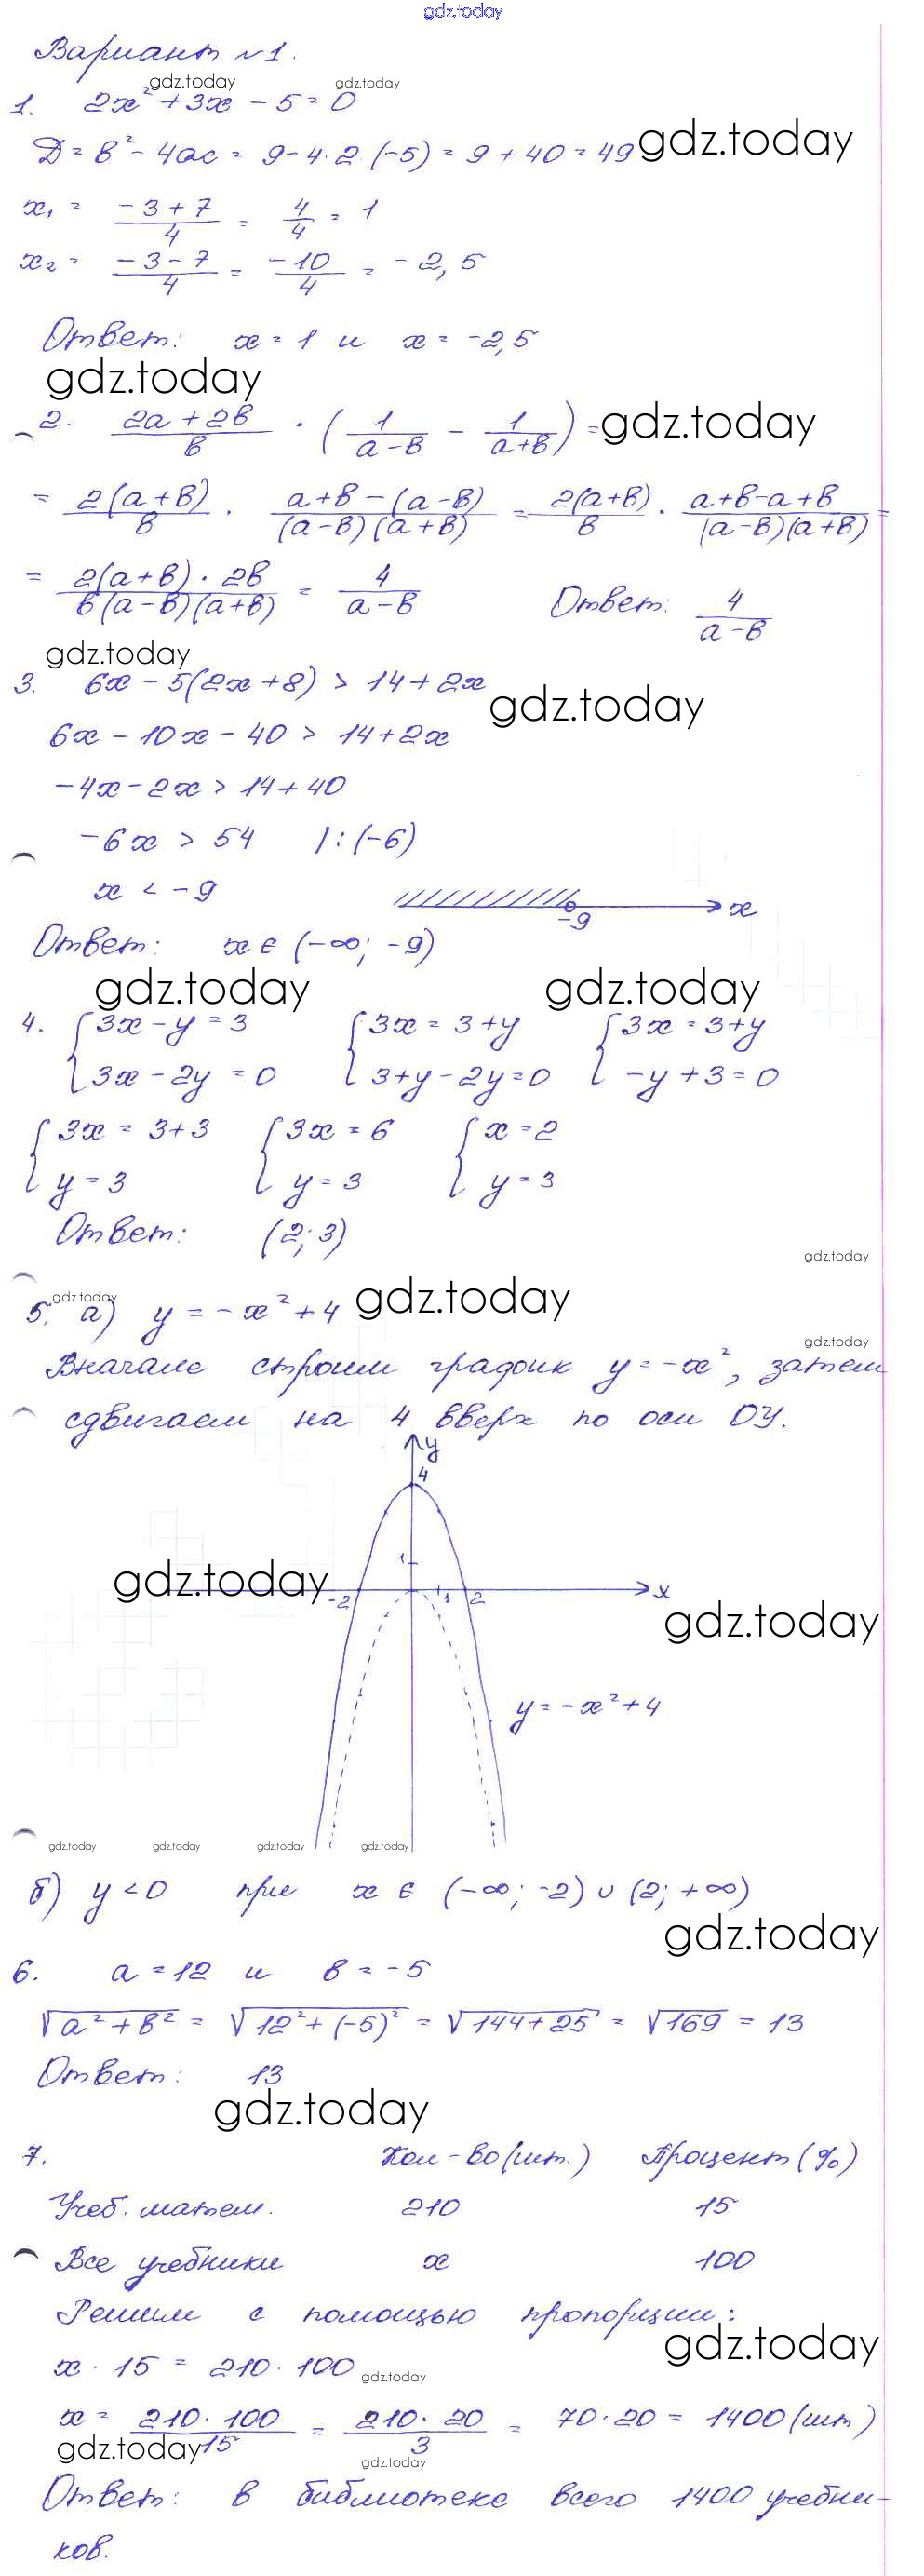 gdz.today
Вариант №1.
gdz.today gdz.today
1. 2x² + 3x - 5 = 0
D = b² - 4ac = 9 - 4·2·(-5) = 9 + 40 = 49 gdz.today
x₁ = (-3+7)/4 = 4/4 = 1
x₂ = (-3-7)/4 = -10/4 = -2,5
Ответ: x = 1 и x = -2,5
gdz.today
2. (2a+2b)/b · (1/(a-b) - 1/(a+b)) = gdz.today
= 2(a+b)/b · (a+b-(a-b))/((a-b)(a+b)) = 2(a+b)/b · (a+b-a+b)/((a-b)(a+b)) =
= (2(a+b)·2b)/(b(a-b)(a+b)) = 4/(a-b) Ответ: 4/(a-b)
gdz.today
3. 6x - 5(2x+8) > 14 + 2x
gdz.today
6x - 10x - 40 > 14 + 2x
-4x - 2x > 14 + 40
-6x > 54 |:(-6)
x < -9
-9 x
Ответ: x ∈ (-∞; -9)
gdz.today gdz.today
4. {3x - y = 3 {3x = 3+y {3x = 3+y
{3x - 2y = 0 {3+y-2y=0 {-y+3=0
{3x = 3+3 {3x = 6 {x = 2
{y = 3 {y = 3 {y = 3
Ответ: (2; 3)
gdz.today
gdz.today
5. а) y = -x² + 4 gdz.today
gdz.today
Вначале строим график y = -x², затем
сдвигаем на 4 вверх по оси OY.
y
4
1
gdz.today
-2 1 2 x
gdz.today
y = -x² + 4
gdz.today gdz.today gdz.today gdz.today
б) y < 0 при x ∈ (-∞; -2) ∪ (2; +∞)
gdz.today
6. a = 12 и b = -5
√(a²+b²) = √(12²+(-5)²) = √(144+25) = √169 = 13
Ответ: 13
gdz.today
7. Кол-во (шт.) Процент (%)
Учеб. матем. 210 15
Все учебники x 100
Решим с помощью пропорции:
gdz.today
x · 15 = 210 · 100
gdz.today
x = (210·100)/15 = (210·20)/3 = 70·20 = 1400 (шт)
gdz.today gdz.today
Ответ: в библиотеке всего 1400 учебни-
ков.